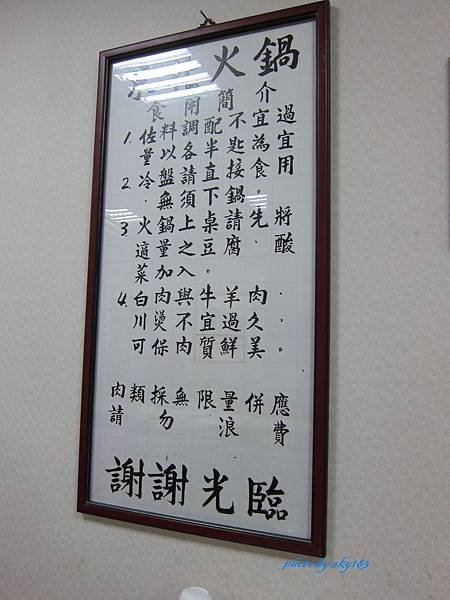 火鍋
食用簡介
1. 佐料調配不宜過
量以各半匙為宜
2. 冷盤請直接食用
．無須下鍋。
3. 火鍋上桌請先將
適量之豆腐、酸
菜加入。
4. 白肉與牛羊肉．
川燙不宜過久．
可保肉質鮮美。
肉類採無限量併應
請勿浪費
謝謝光臨
photo by sky183